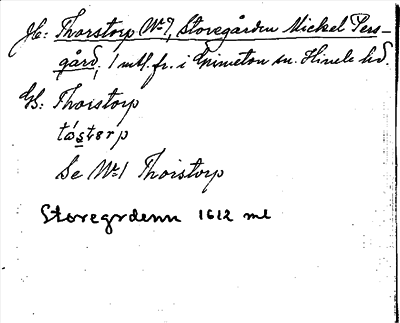 Jb: Thorstorp No 7, Storegården Mickel Pers-
gård, 1 mtl. fr. i Grimeton sn. Himle hd.
GS: Thorstorp
tåsterp
Se No 1 Thorstorp
Storegrdenn 1612 ml